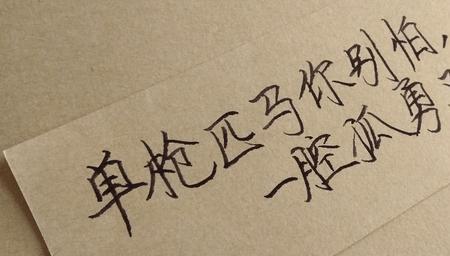 单枪匹马你别怕，
一腔孤勇